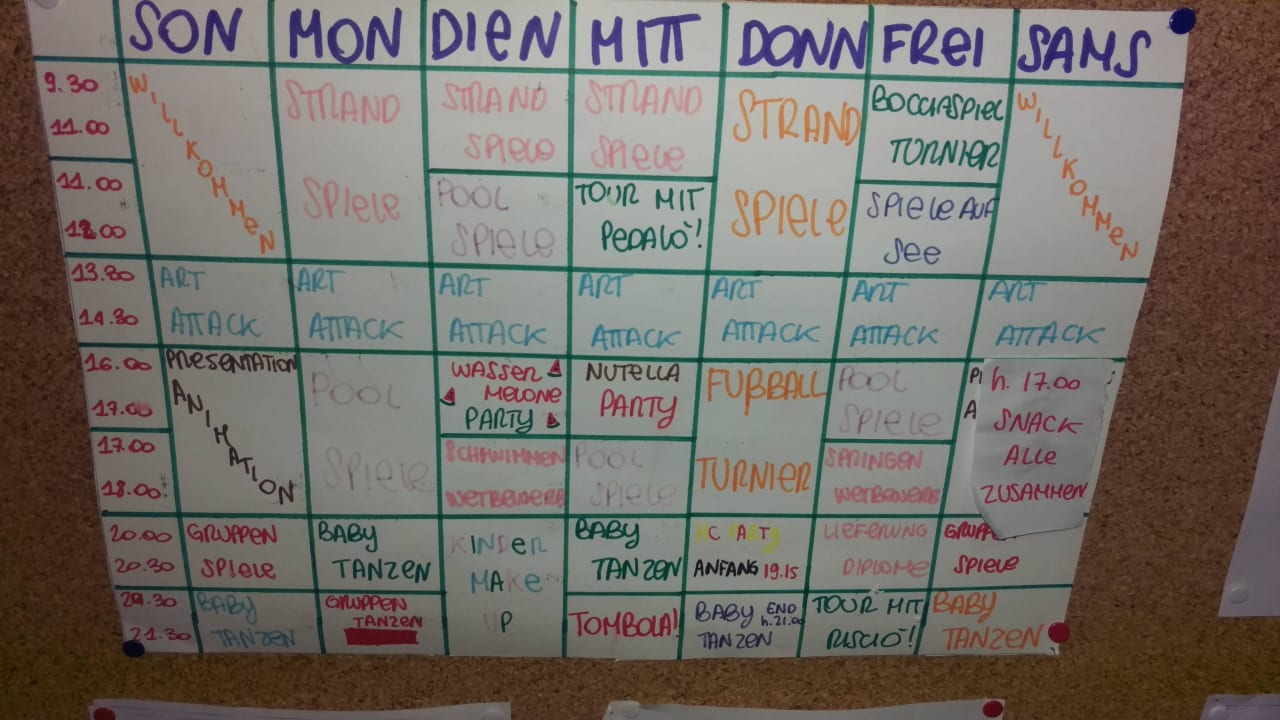 SON MON DIEN MITT DONN FREI SAMS
9.30
11.00
WILLKOMMEN
STRAND
SPIELE
STRAND
SPIELE
STRAND
SPIELE
STRAND
SPIELE
BOCCIASPIEL
TURNIER
WILLKOMMEN
11.00
12.00
POOL
SPIELE
TOUR MIT
PEDALO'!
SPIELE AUF
SEE
13.30
14.30
ART
ATTACK
ART
ATTACK
ART
ATTACK
ART
ATTACK
ART
ATTACK
ART
ATTACK
ART
ATTACK
16.00
17.00
PRESENTATION
ANIMATION
POOL
SPIELE
WASSER
MELONE
PARTY
NUTELLA
PARTY
FUßBALL
TURNIER
POOL
SPIELE
h. 17.00
SNACK
ALLE
ZUSAMMEN
17.00
18.00
SCHWIMMEN
WETBEWERB
POOL
SPIELE
SPRINGEN
WETBEWERB
20.00
20.30
GRUPPEN
SPIELE
BABY
TANZEN
KINDER
MAKE
UP
BABY
TANZEN
ANFANG 19.15
LIEFERUNG
DIPLOME
GRUPPEN
SPIELE
21.30
BABY
TANZEN
GRUPPEN
TANZEN
TOMBOLA!
BABY END
h.21.00
TANZEN
TOUR MIT
RISCIÒ'!
BABY
TANZEN